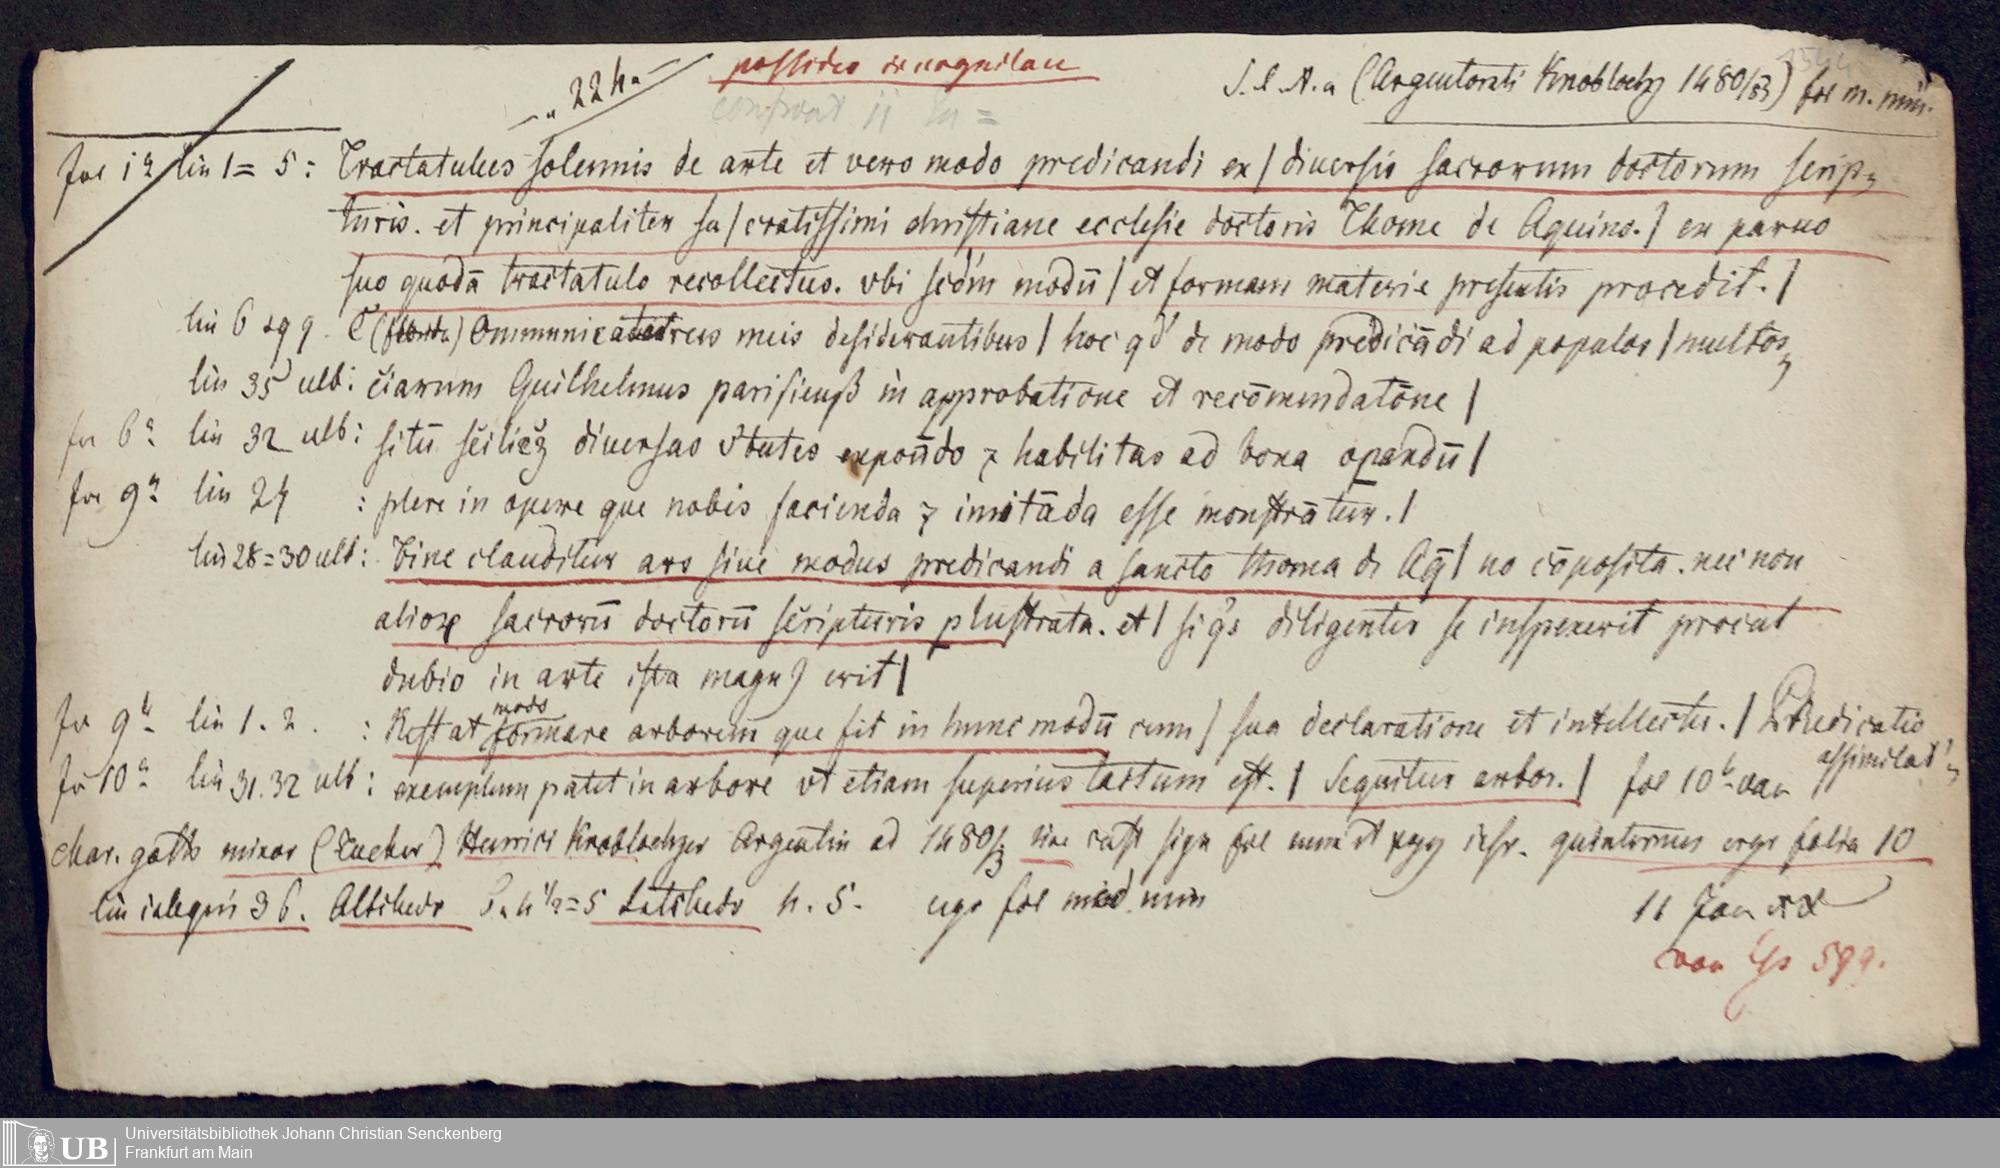 224a possideo
S. l. et. a (Argentorati Knoblochz 1480/83) fol m. min.
fol 1a lin 1=5: Tractatulus solennis de arte et vero modo predicandi ex | diuersis sacrorum doctorum scrip
turis. et principaliter sa | cratissimi christiane ecclesie doctoris Thome de Aquino. | ex paruo
suo quodā tractatulo recollectus. vbi scdm modū | et formam materie presentis procedit. |
lin 6 sqq. C ommunicaturus meis desiderantibus | hoc qd de modo predicādi ad populos | multos
lin 35 ult: ciarum Guilhelmus parisienß in approbatione et recōmendatōne |
fol 6a lin 32 ult: sitū diuersas Vtutes expoūdo ⁊ habilitas ad bona opandū |
fol 9a lin 24 : plere in opere que nobis facienda ⁊ imitāda esse monstrātur. |
lin 28=30 ult: Fine clauditur ars siue modus predicandi a sancto thoma de Aq̄ | no cōposita. nec non
alioꝝ sacrorū doctorū scripturis plustrata. et | siqs diligenter se inspexerit procul
dubio in arte ista magnꝰ erit |
fol 9b lin 1. 2. : Restat modo formare arborem que fit in hunc modū cum | sua declaratione et intellectu. | Predicatio
assimilat
fol 10a lin 31. 32 ult: exemplum patet in arbore vt etiam superius tactum est. | Sequitur arbor. | fol 10b
char. goth minor Henrici Knoblochzer Argentin ad 1480/83 sine cust sign fol num et quinternus ergo folia 10
lin integris 36. 5. ergo fol med. min
11 Jan
599.
Universitätsbibliothek Johann Christian Senckenberg
Frankfurt am Main
UB